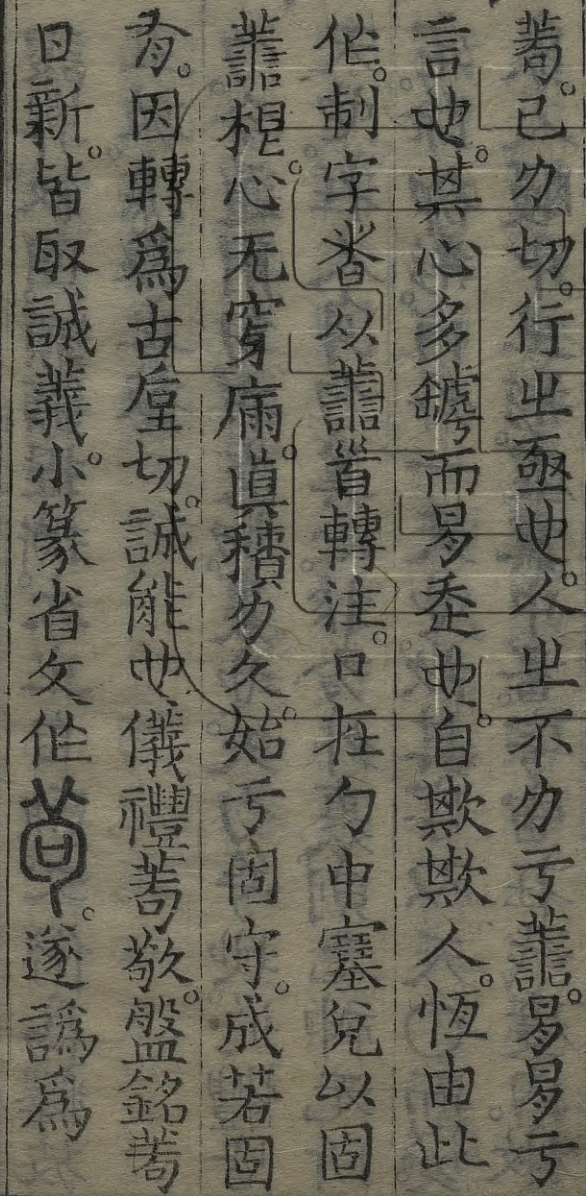 茍。己力切。行㞢亟也。人㞢不力亏譱。昜昜亏
言也。其心多罅而昜垂也。自欺欺人。恆由此
作。制字者以譱首轉注。口在勹中。塞兌以固
譱根。心无穿扇。真積力久。始亏固守。成若固
有。因轉爲古垕切。誠能也。儀禮茍敬。盤銘茍
日新。皆取誠義。小篆省文作茍。遂譌爲